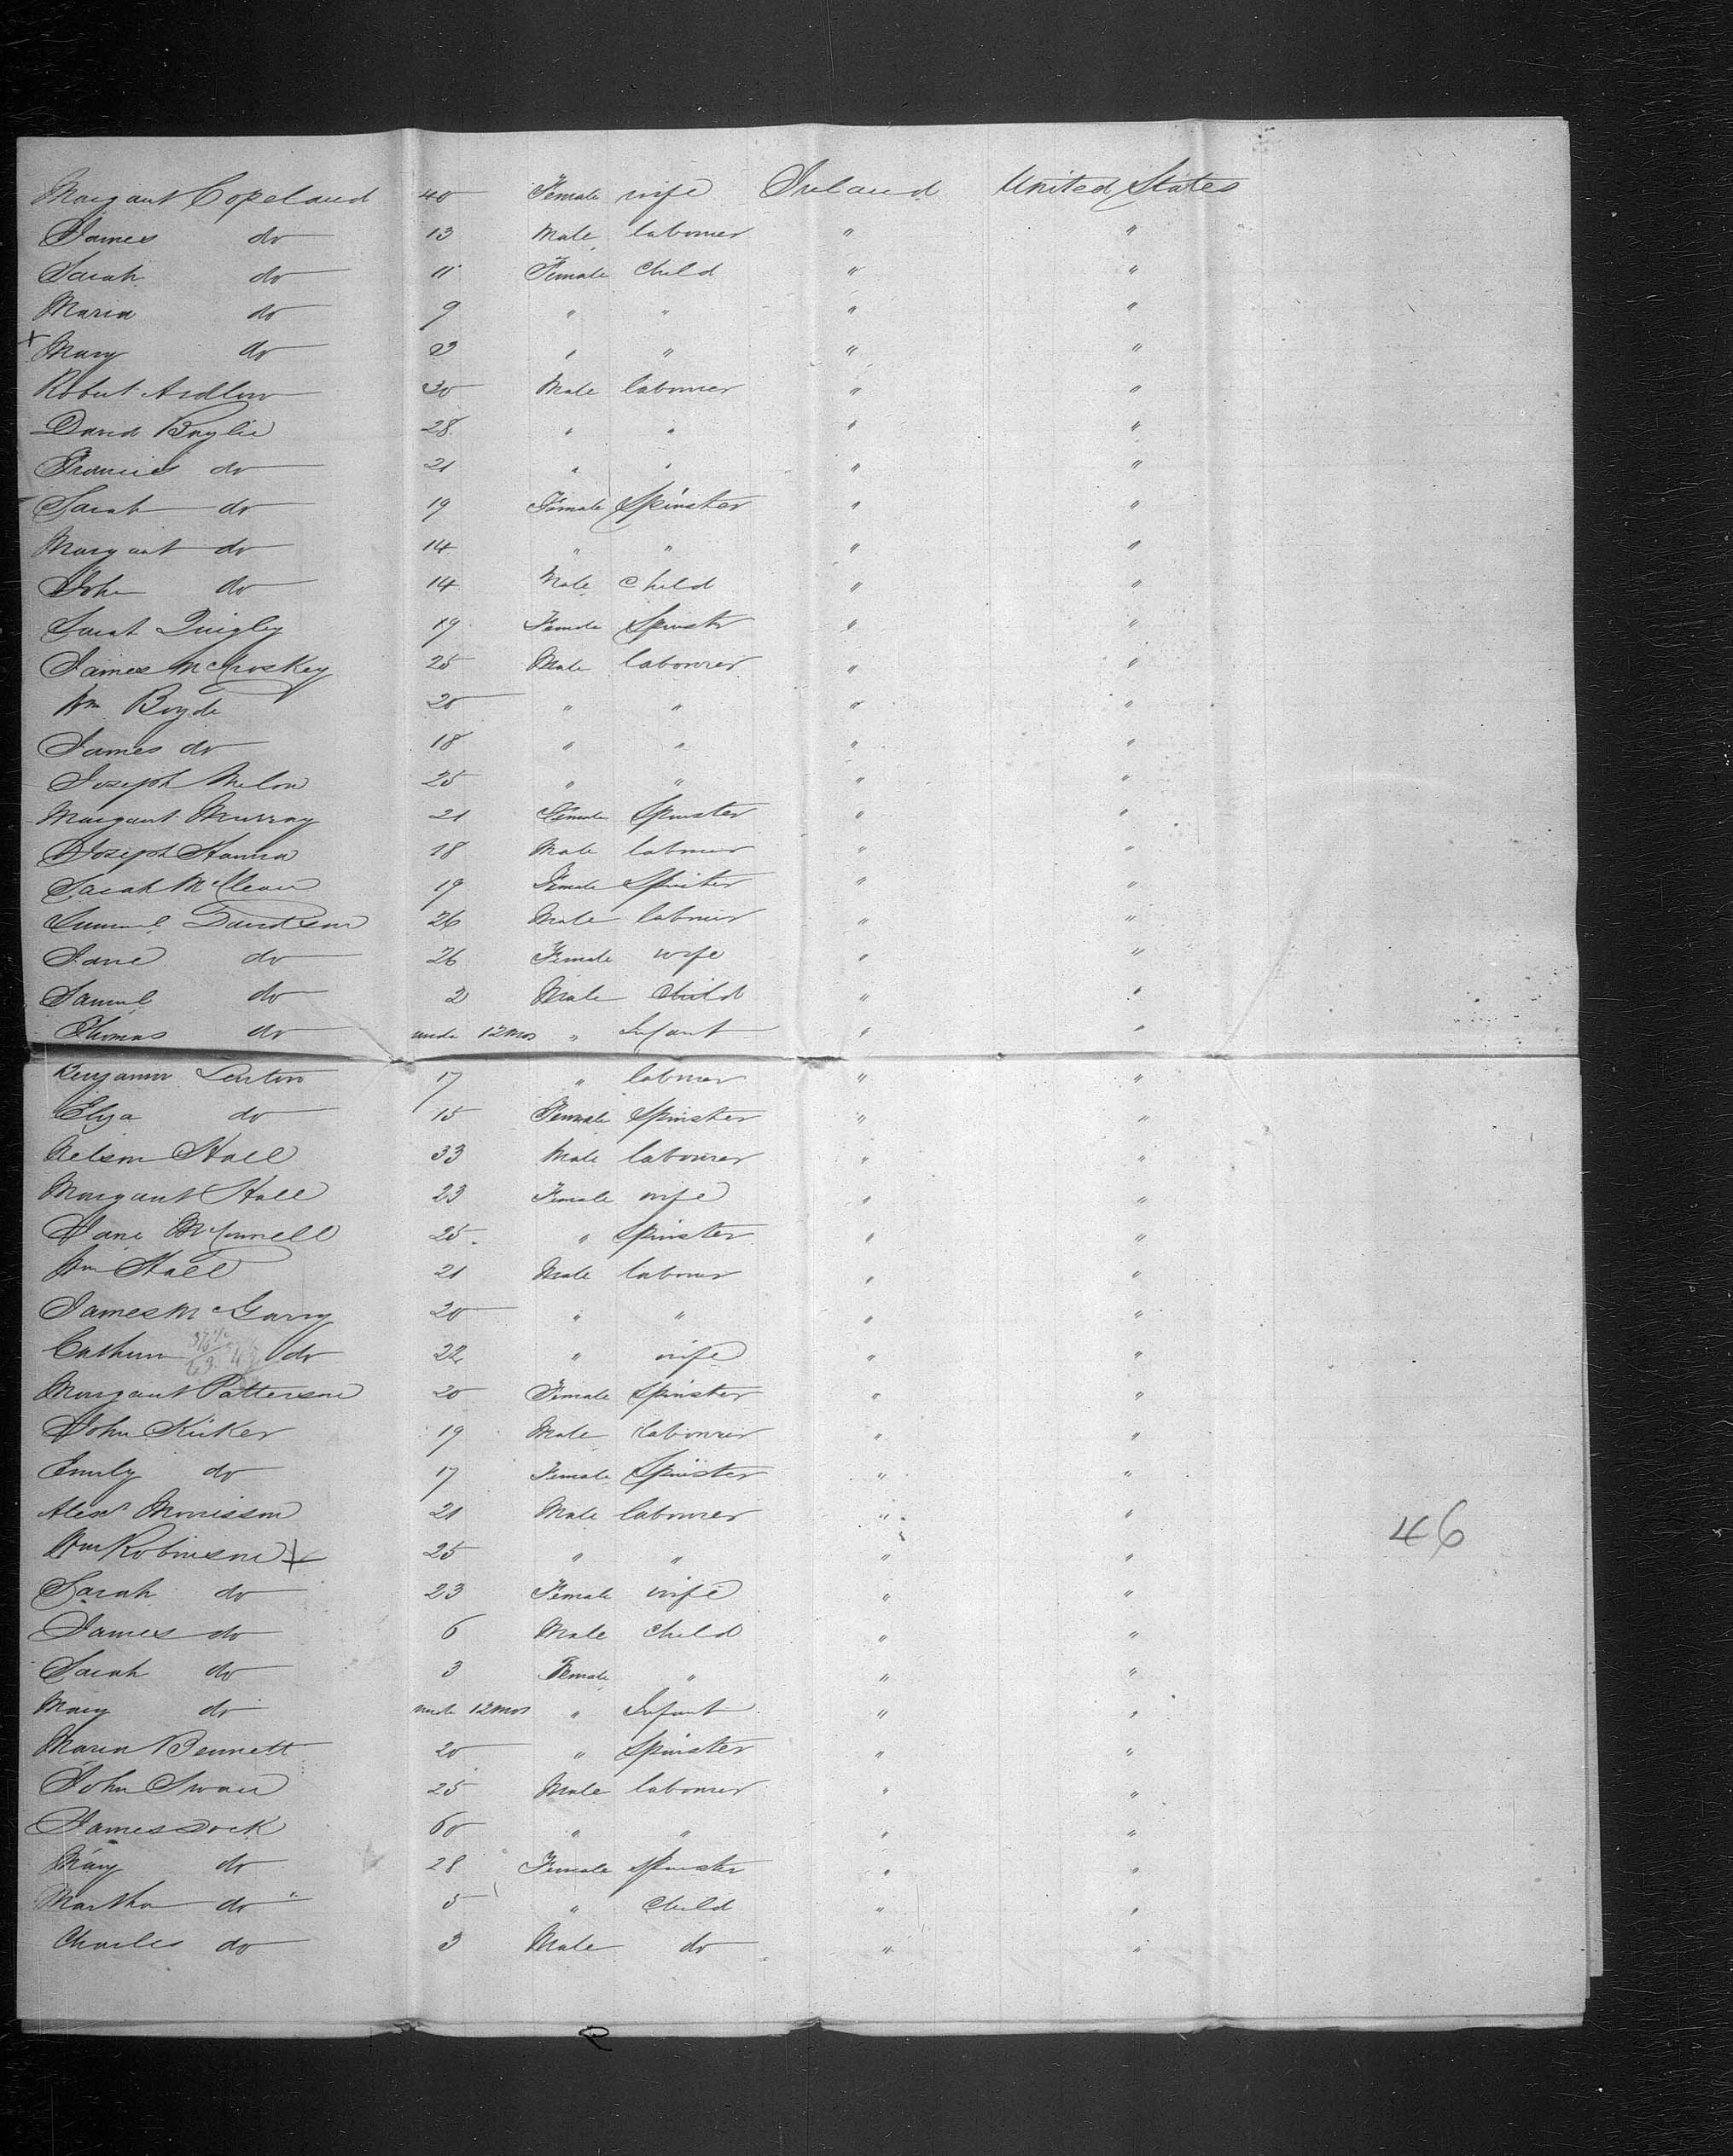 Margaret Copeland 40 Female wife Ireland United States
James do 13 Male labourer " "
Sarah do 11 Female Child " "
Maria do 9 " " " "
+ Mary do 3 " " " "
Robert Ardlow 30 Male labourer " "
David Baylie 28 " " " "
Francies do 21 " " " "
Sarah do 19 Female Spinster " "
Margaret do 14 " " " "
John do 14 Male Child " "
Sarah Quigley 19 Female Spinster " "
James McCroskey 25 Male labourer " "
Wm Boyde 20 " " " "
James do 18 " " " "
Joseph 25 " " " "
Margaret Murray 21 Female Spinster " "
Joseph Hanna 18 Male labourer " "
Sarah McClean 19 Female Spinster " "
Samuel Davidson 26 Male labourer " "
Jane do 26 Female wife " "
Samuel do 2 Male Child " "
Thomas do under 12 mos " Infant " "
Benjamin 17 " labourer " "
Eliza do 15 Female Spinster " "
Nelson Hall 33 Male labourer " "
Margaret Hall 23 Female wife " "
Jane McConnell 25 " Spinster " "
Wm Hall 21 Male labourer " "
James McGarry 20 " " " "
do 22 " wife " "
Margaret Patterson 20 Female Spinster " "
John Kirker 19 Male labourer " "
Emily do 17 Female Spinster " "
Alexr Morrisson 21 Male labourer " "
Wm Robinson + 25 " " " "
Sarah do 23 Female wife " "
James do 6 Male Child " "
Sarah do 3 Female " " "
Mary do under 12 mos " Infant " "
Maria Bennett 20 " Spinster " "
John Swan 25 Male labourer " "
James Dock 60 " " " "
Mary do 28 Female Spinster " "
Martha do 5 " Child " "
Charles do 3 Male do " "
46